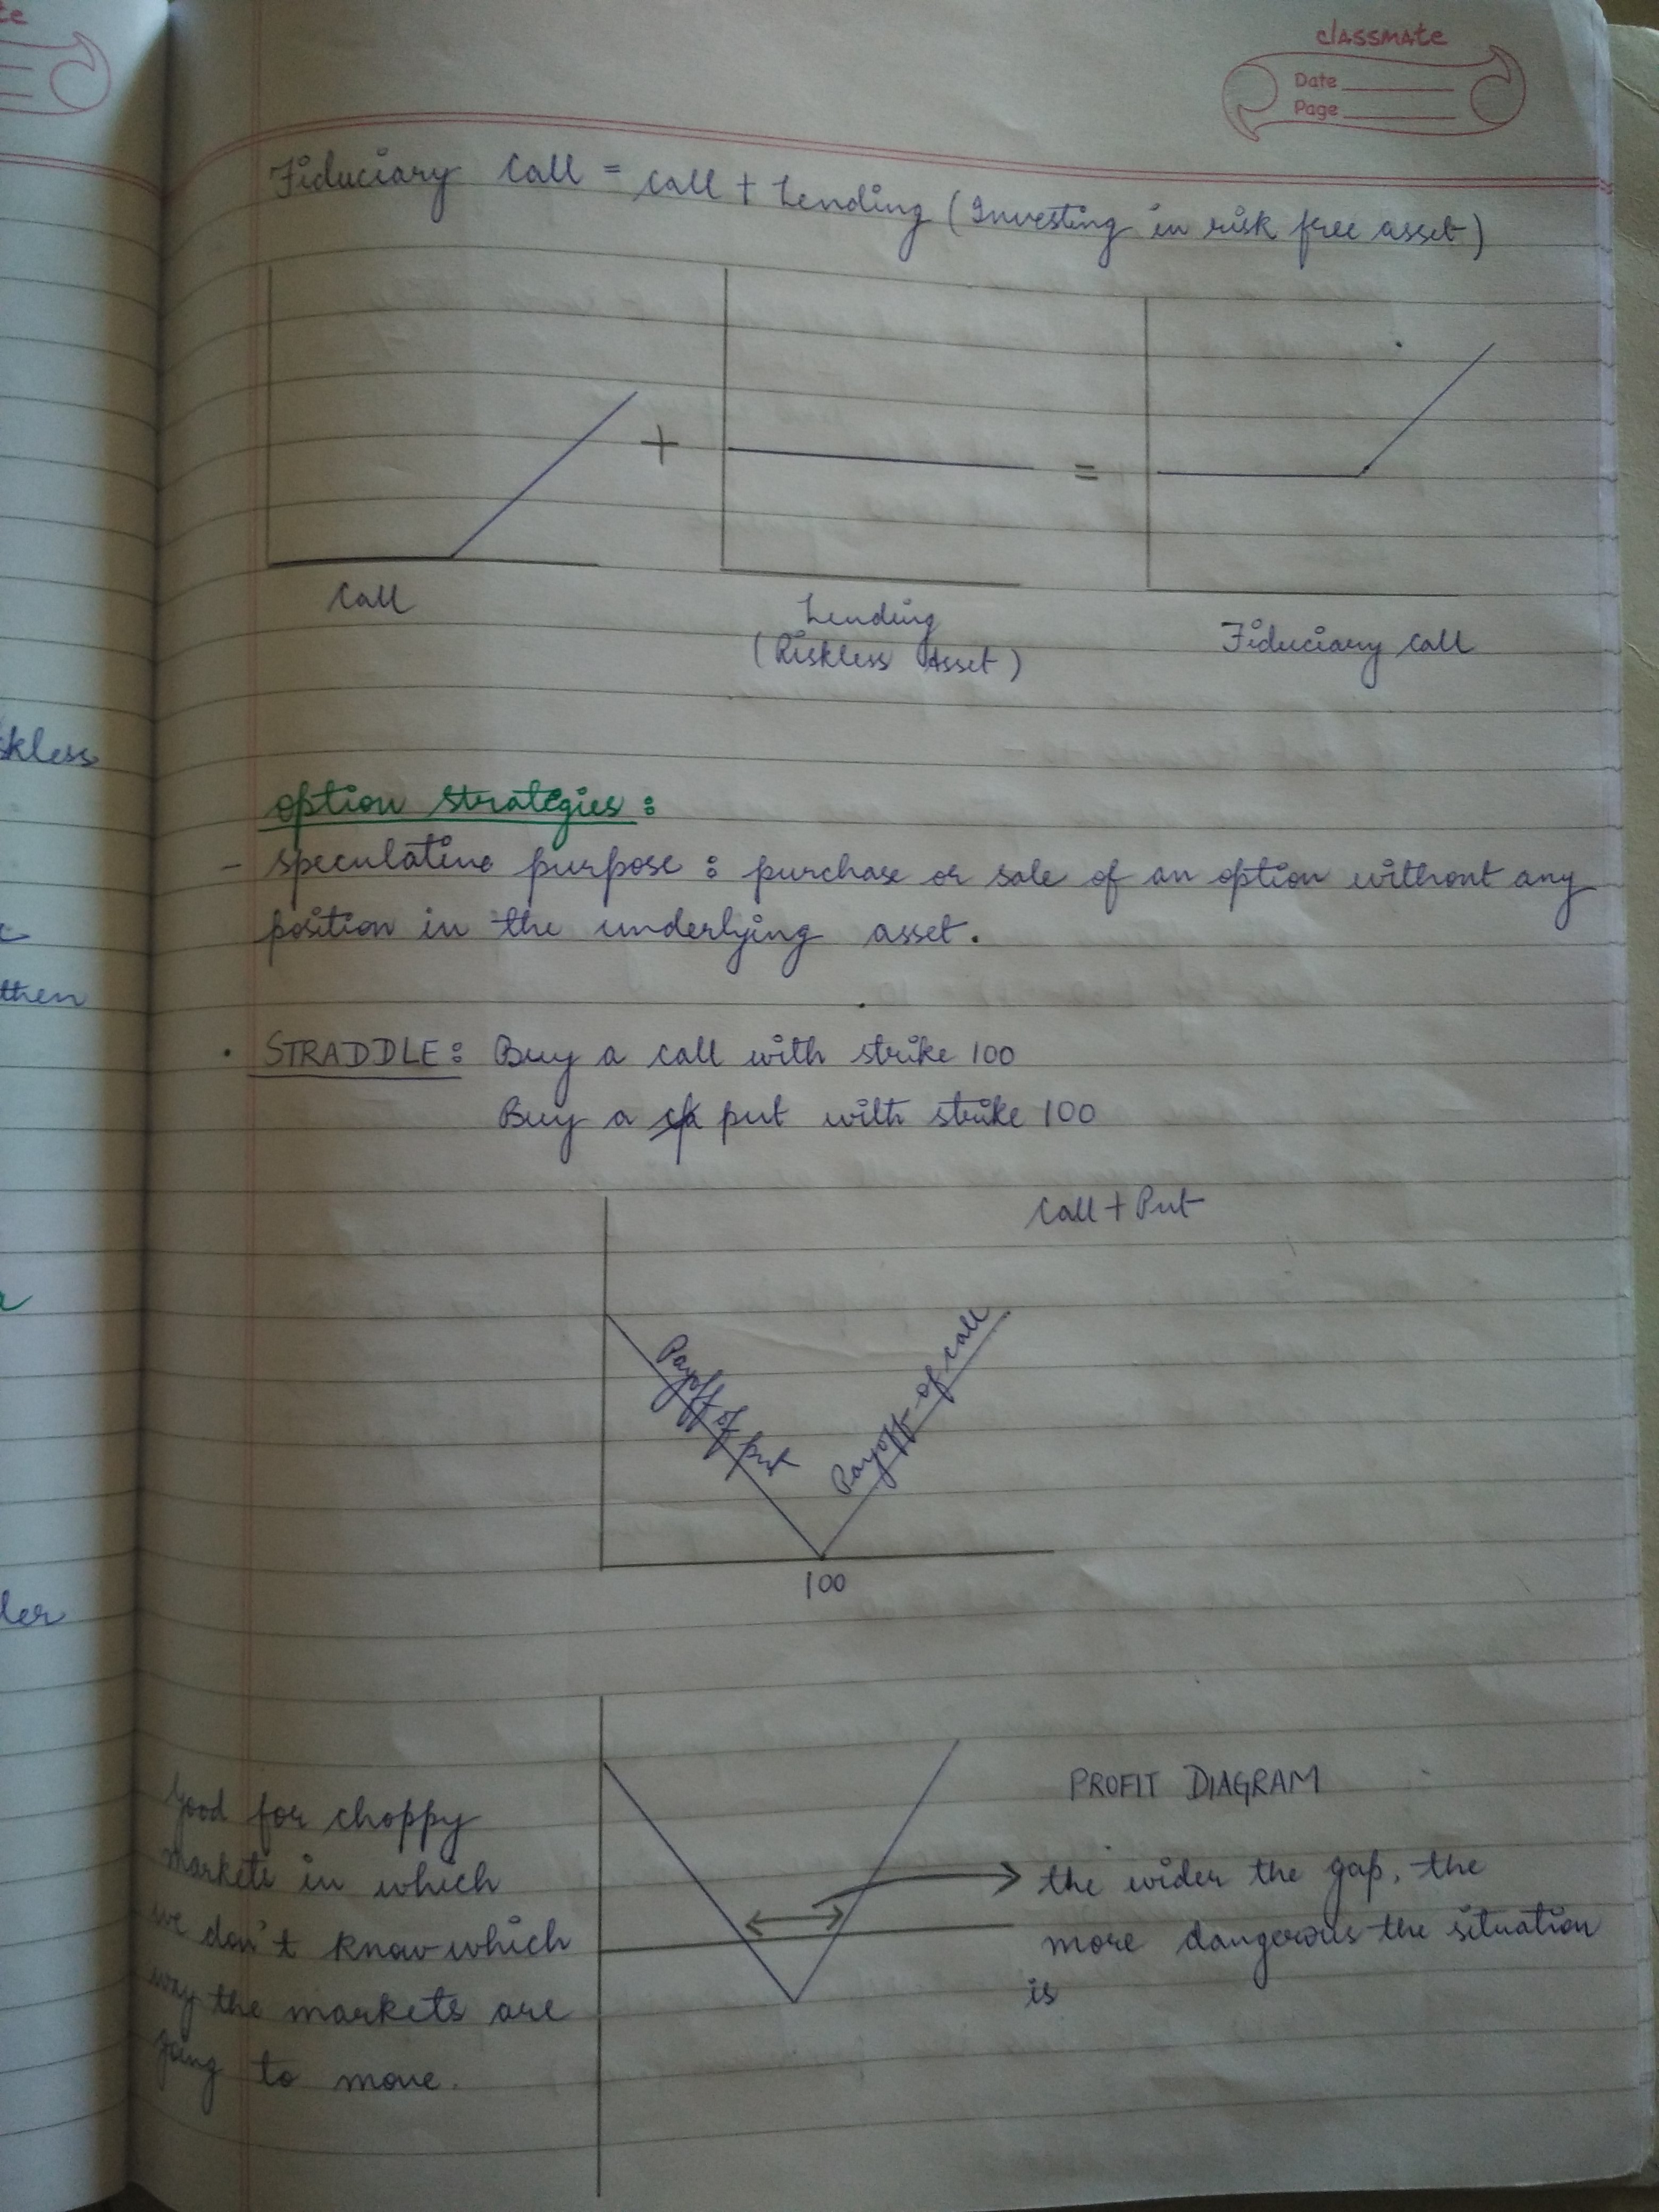 te
classmate
Date
Page
Fiduciary Call = Call + Lending (Investing in risk free asset)
+
=
Call
Lending
(Riskless Asset)
Fiduciary Call
skless
Option Strategies :
- Speculative purpose : purchase or sale of an option without any
position in the underlying asset.
then
• STRADDLE : Buy a call with strike 100
Buy a put with strike 100
Call + Put
Payoff of put
Payoff of call
100
PROFIT DIAGRAM
Good for choppy
markets in which
we don't know which
way the markets are
going to move.
the wider the gap, the
more dangerous the situation
is